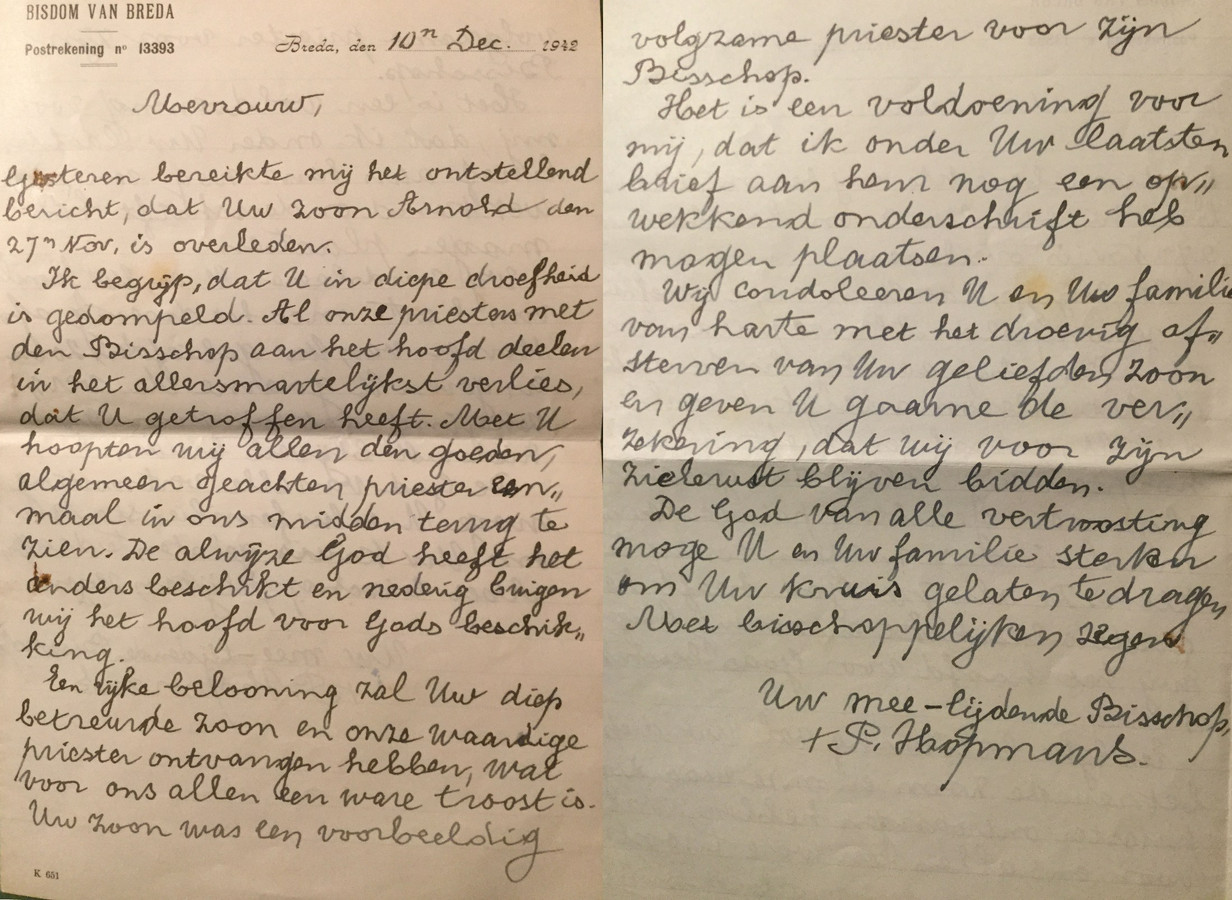 BISDOM VAN BREDA
Postrekening nº 13393
Breda, den 10ⁿ Dec. 1942
Mevrouw,
Gisteren bereikte mij het ontstellend
bericht, dat Uw zoon Arnold den
27ⁿ Nov. is overleden.
Ik begrijp, dat U in diepe droefheid
is gedompeld. Al onze priesters met
den Bisschop aan het hoofd deelen
in het allersmartelijkst verlies,
dat U getroffen heeft. Met U
hoopten wij allen den goeden,
algemeen geachten priester een„
maal in ons midden terug te
zien. De alwijze God heeft het
anders beschikt en nederig buigen
wij het hoofd voor Gods beschik„
king.
Een rijke belooning zal Uw diep
betreurde zoon en onze waardige
priester ontvangen hebben, wat
voor ons allen een ware troost is.
Uw zoon was een voorbeeldig
K 651
volgzame priester voor zijn
Bisschop.
Het is een voldoening voor
mij, dat ik onder Uw laatsten
brief aan hem nog een op„
wekkend onderschrift heb
mogen plaatsen.
Wij condoleeren U en Uw familie
van harte met het droevig af„
sterven van Uw geliefden zoon
en geven U gaarne de ver„
zekering, dat wij voor zijn
zielerust blijven bidden.
De God van alle vertroosting
moge U en Uw familie sterken
om Uw kruis gelaten te dragen
Met bisschoppelijken zegen
Uw mee-lijdende Bisschop,
+ P. Hopmans.